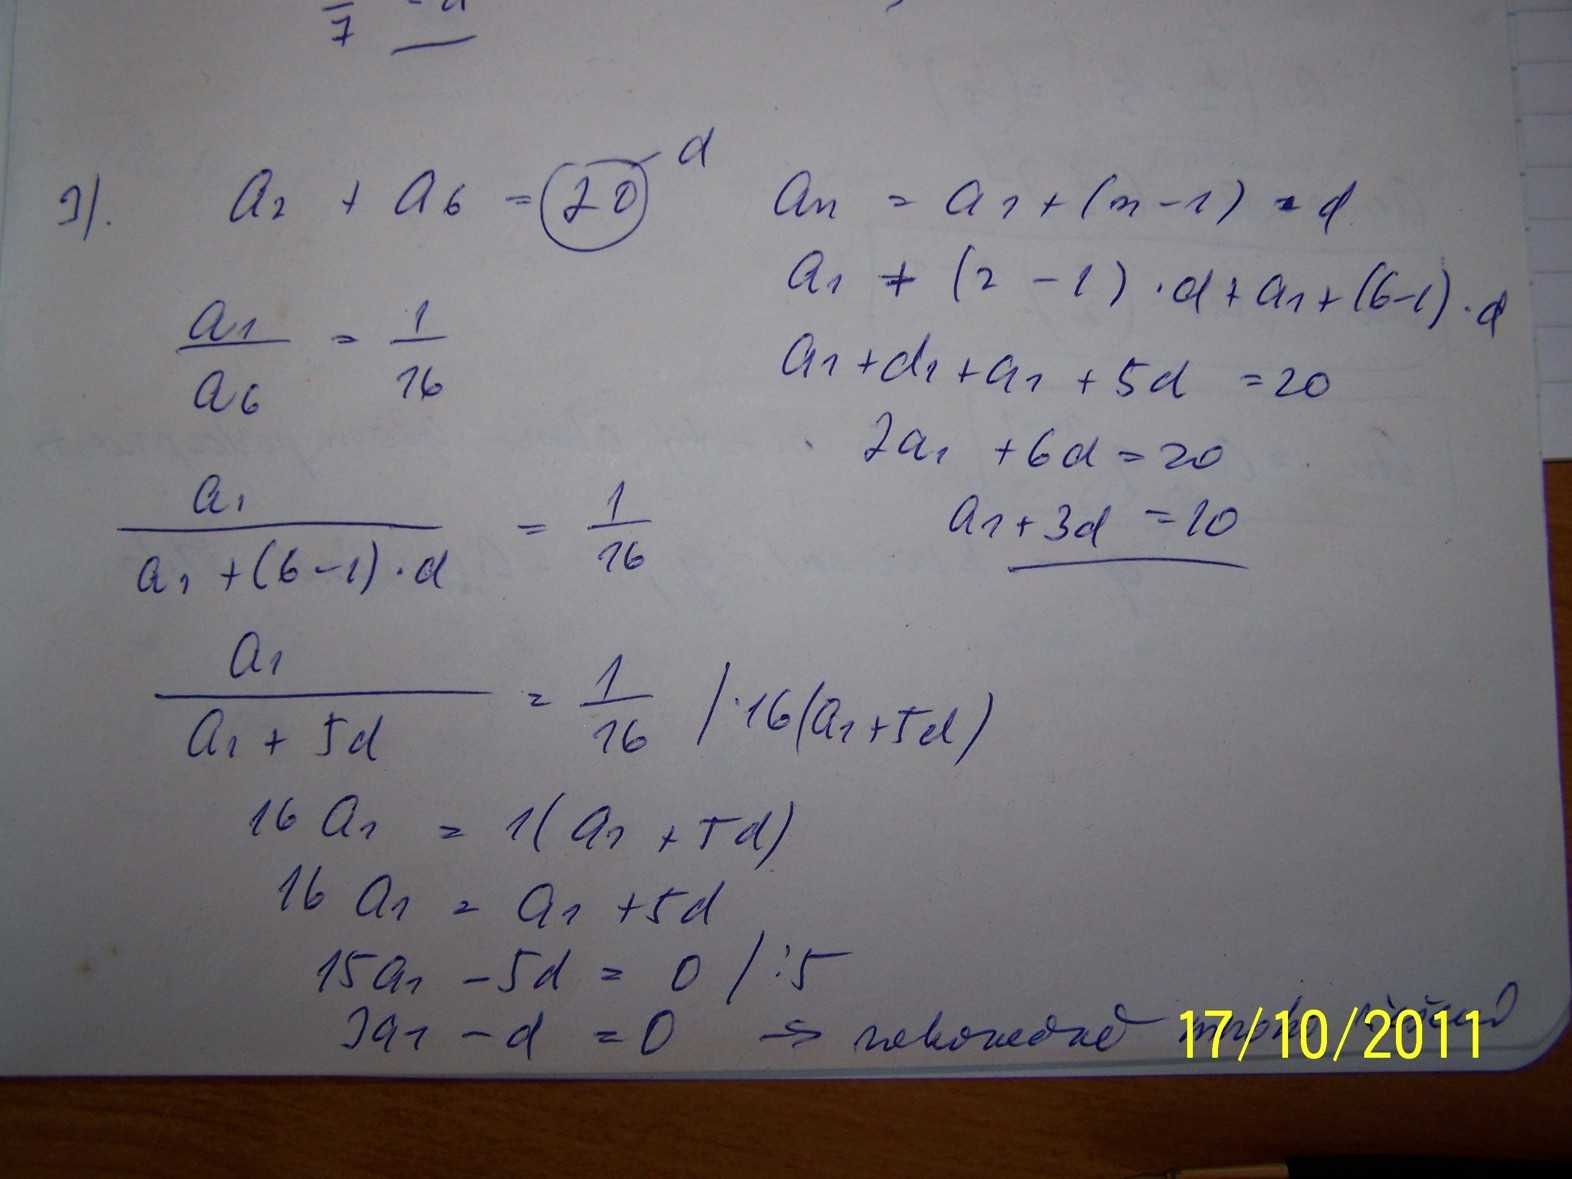 7 - d
3/. a₂ + a₆ = 20 d
a₁/a₆ = 1/16
a₁/(a₁ + (6-1)·d) = 1/16
a₁/(a₁ + 5d) = 1/16 /·16(a₁+5d)
16 a₁ = 1(a₁ + 5d)
16 a₁ = a₁ + 5d
15a₁ - 5d = 0 /:5
3a₁ - d = 0 ⇒ nekonečně mnoho řešení
aₙ = a₁ + (n-1) · d
a₁ + (2 - 1) · d + a₁ + (6-1) · d
a₁ + d₁ + a₁ + 5d = 20
2a₁ + 6d = 20
a₁ + 3d = 10
17/10/2011